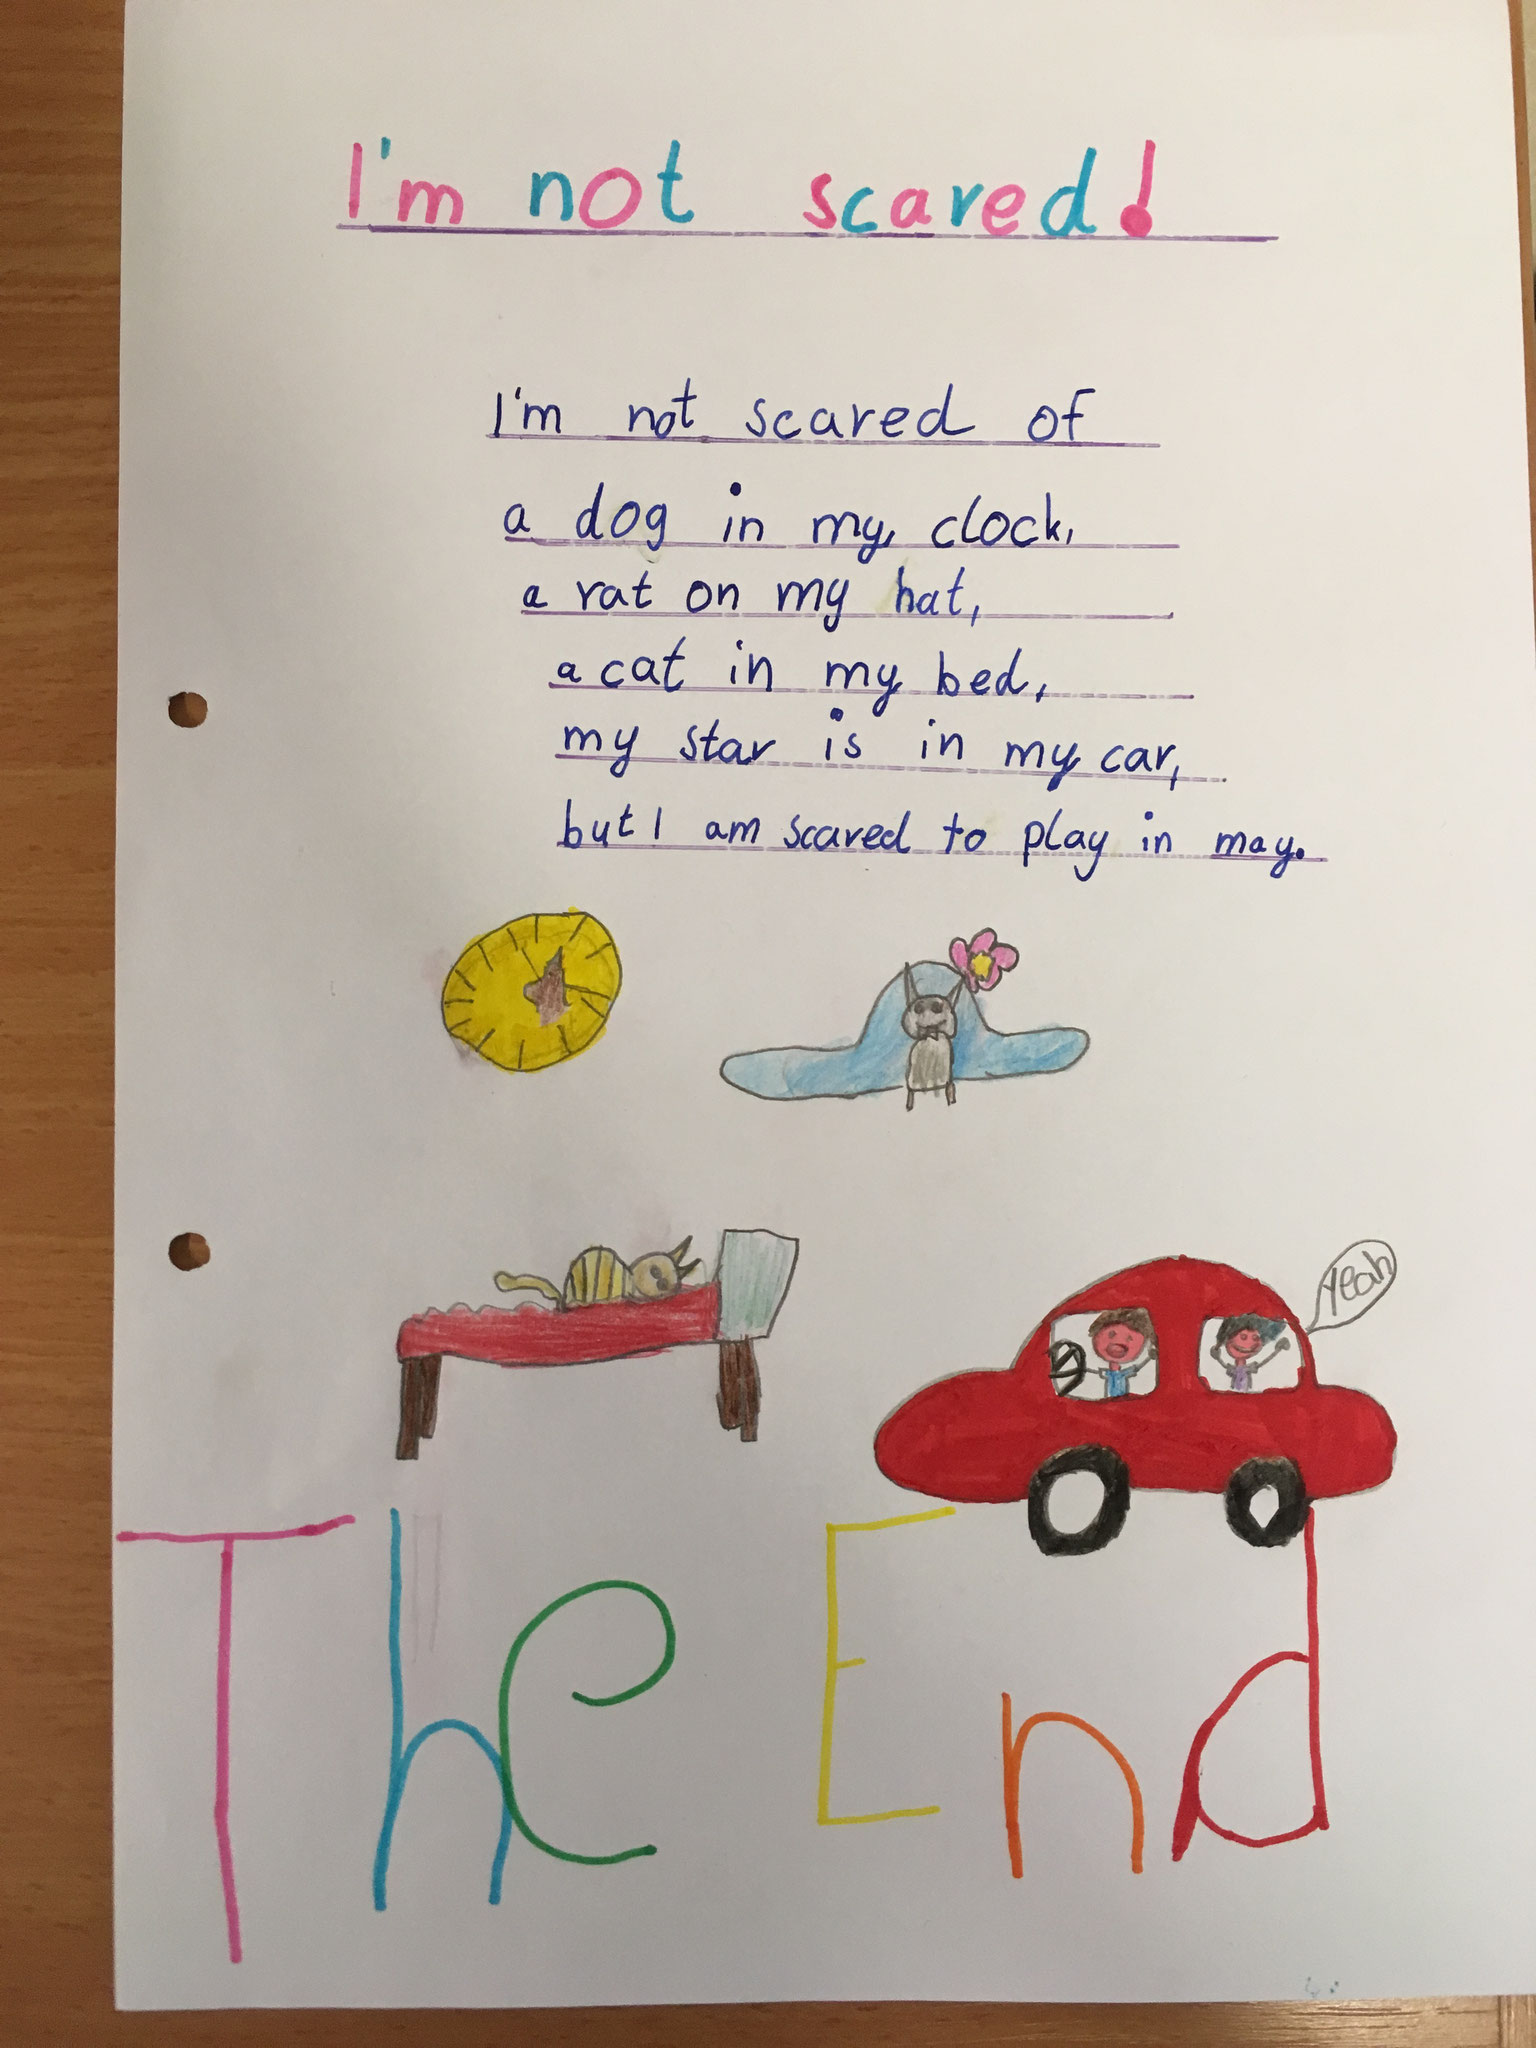 I'm not scared!
I'm not scared of
a dog in my clock,
a rat on my hat,
a cat in my bed,
my star is in my car,
but I am scared to play in may.
Yeah
The End